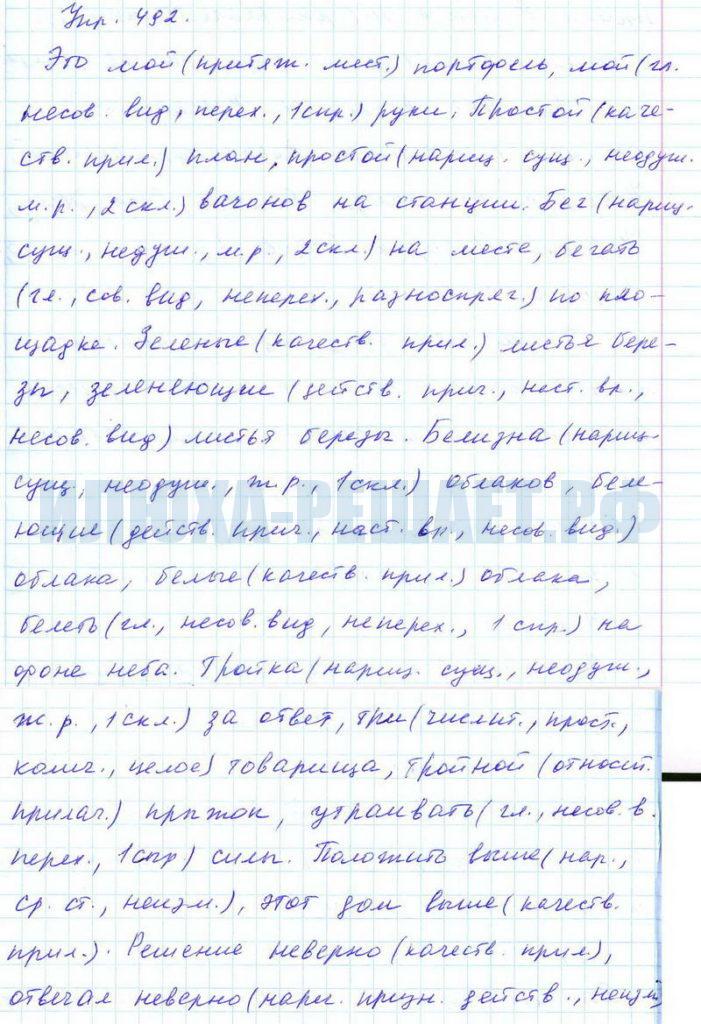 Упр. 492.
Это мой (притяж. мест.) портфель, мой (гл.
несов. вид, перех., 1 спр.) руки. Простой (каче-
ств. прил.) план, простой (нариц. сущ., неодуш.
м.р., 2 скл.) вагонов на станции. Бег (нариц.
сущ., недуш., м.р., 2 скл.) на месте, бегать
(гл., сов. вид, неперех., разноспряг.) по пло-
щадке. Зеленые (качеств. прил.) листья бере-
зы, зеленеющие (действ. прич., наст. вр.,
несов. вид) листья березы. Белизна (нариц.
сущ., неодуш., ж.р., 1 скл.) облаков, беле-
ющие (действ. прич., наст. вр., несов. вид.)
облака, белые (качеств. прил.) облака,
белеть (гл., несов. вид, неперех., 1 спр.) на
фоне неба. Тройка (нариц. сущ., неодуш.,
ж.р., 1 скл.) за ответ, три (числит., прост.,
колич., целое) товарища, тройной (относит.
прилаг.) прыжок, утраивать (гл., несов. в.
перех., 1 спр) силы. Положить выше (нар.,
ср. ст., неизм.), этот дом выше (качеств.
прил.). Решение неверно (качеств. прил.),
отвечал неверно (нареч. призн. действ., неизм
ИЛЮХА-РЕШАЕТ.РФ